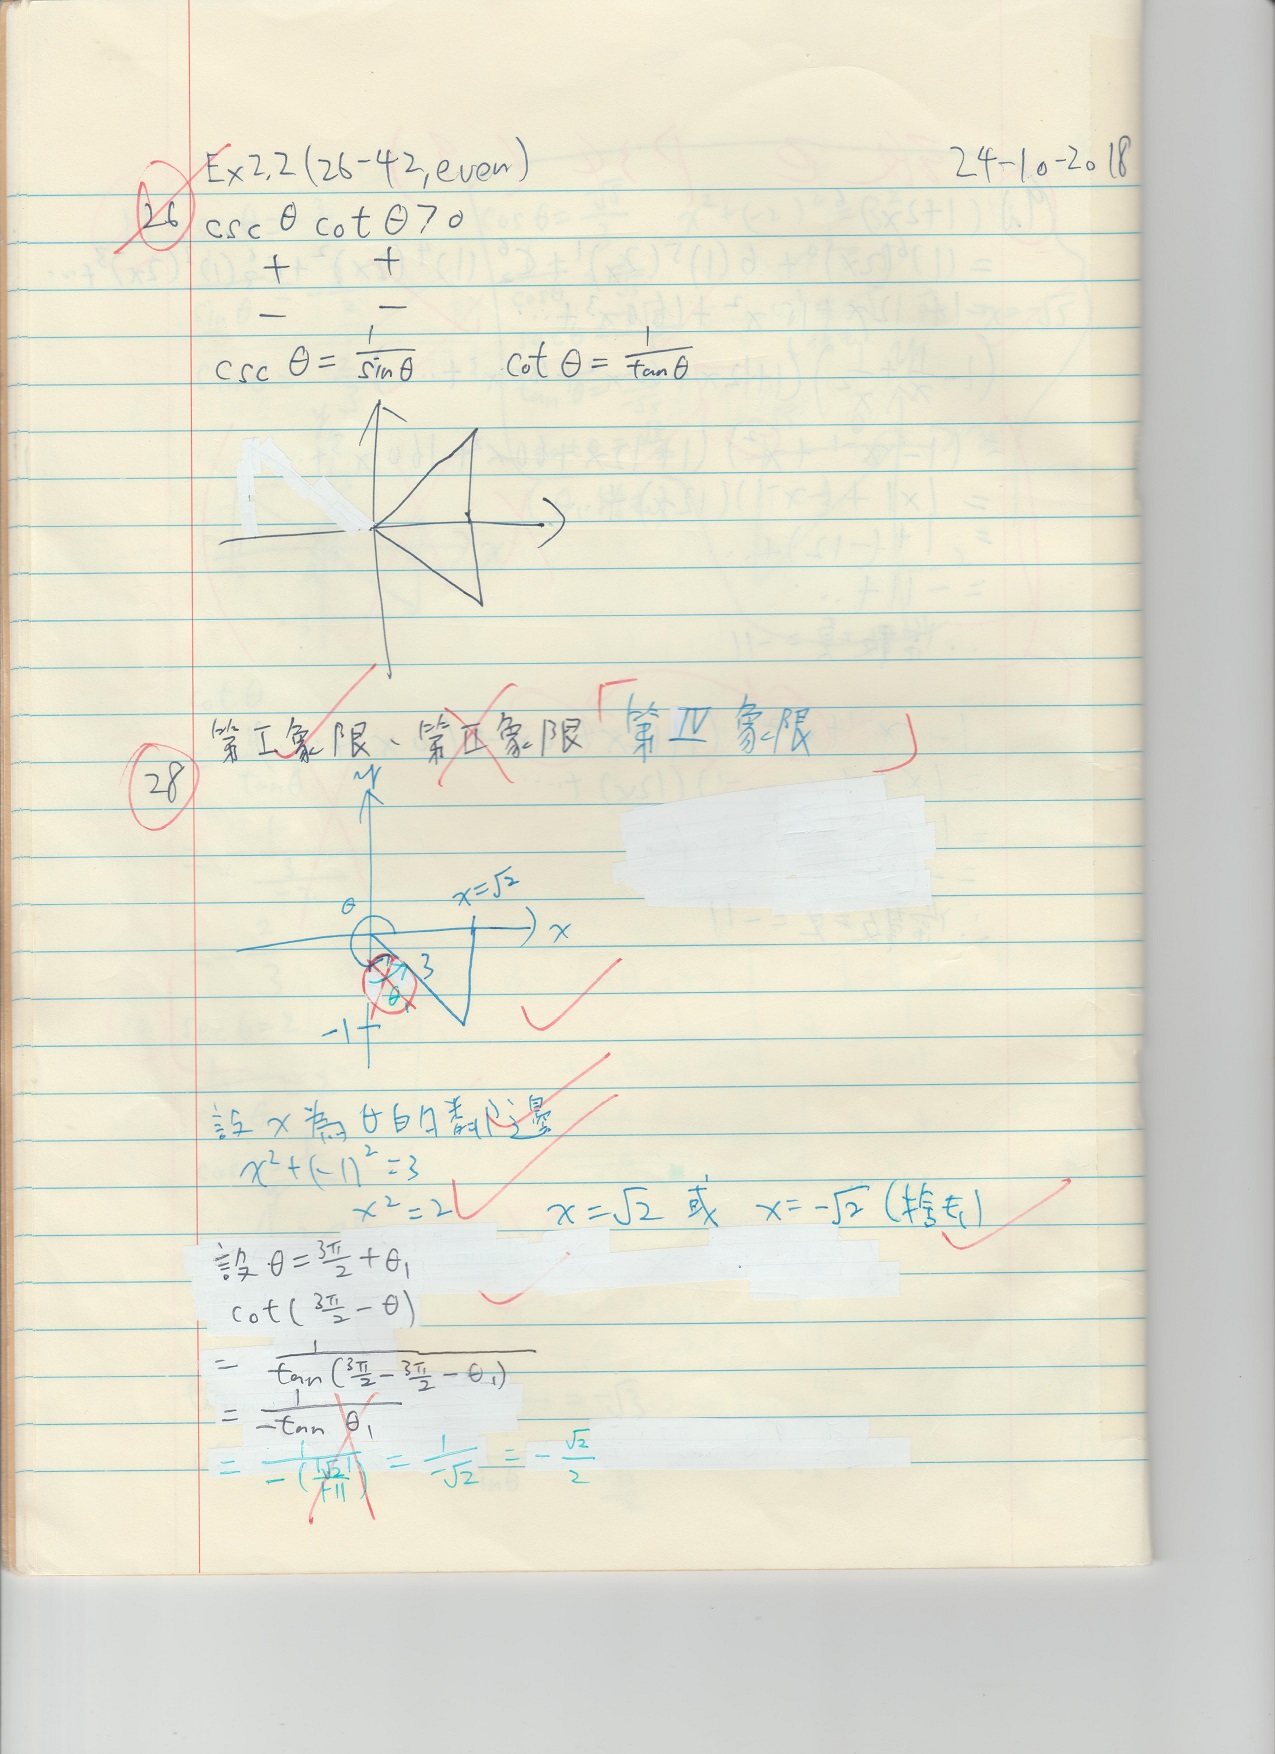 Ex2.2(26-42,even) 24-10-2018
26 csc θ cot θ>0
+ +
− −
csc θ = 1/sinθ cot θ = 1/tanθ
第I象限、第II象限「第IV象限」
28
y
θ x=√2
x
3
θ₁
-1
設x為θ的鄰邊
x²+(-1)²=3
x²=2 x=√2 或 x=-√2 (捨去)
設θ=3π/2+θ₁
cot(3π/2-θ)
= 1/tan(3π/2-3π/2-θ₁)
= 1/-tan θ₁
= 1/-(|√2|/|-1|) = 1/-√2 = -√2/2